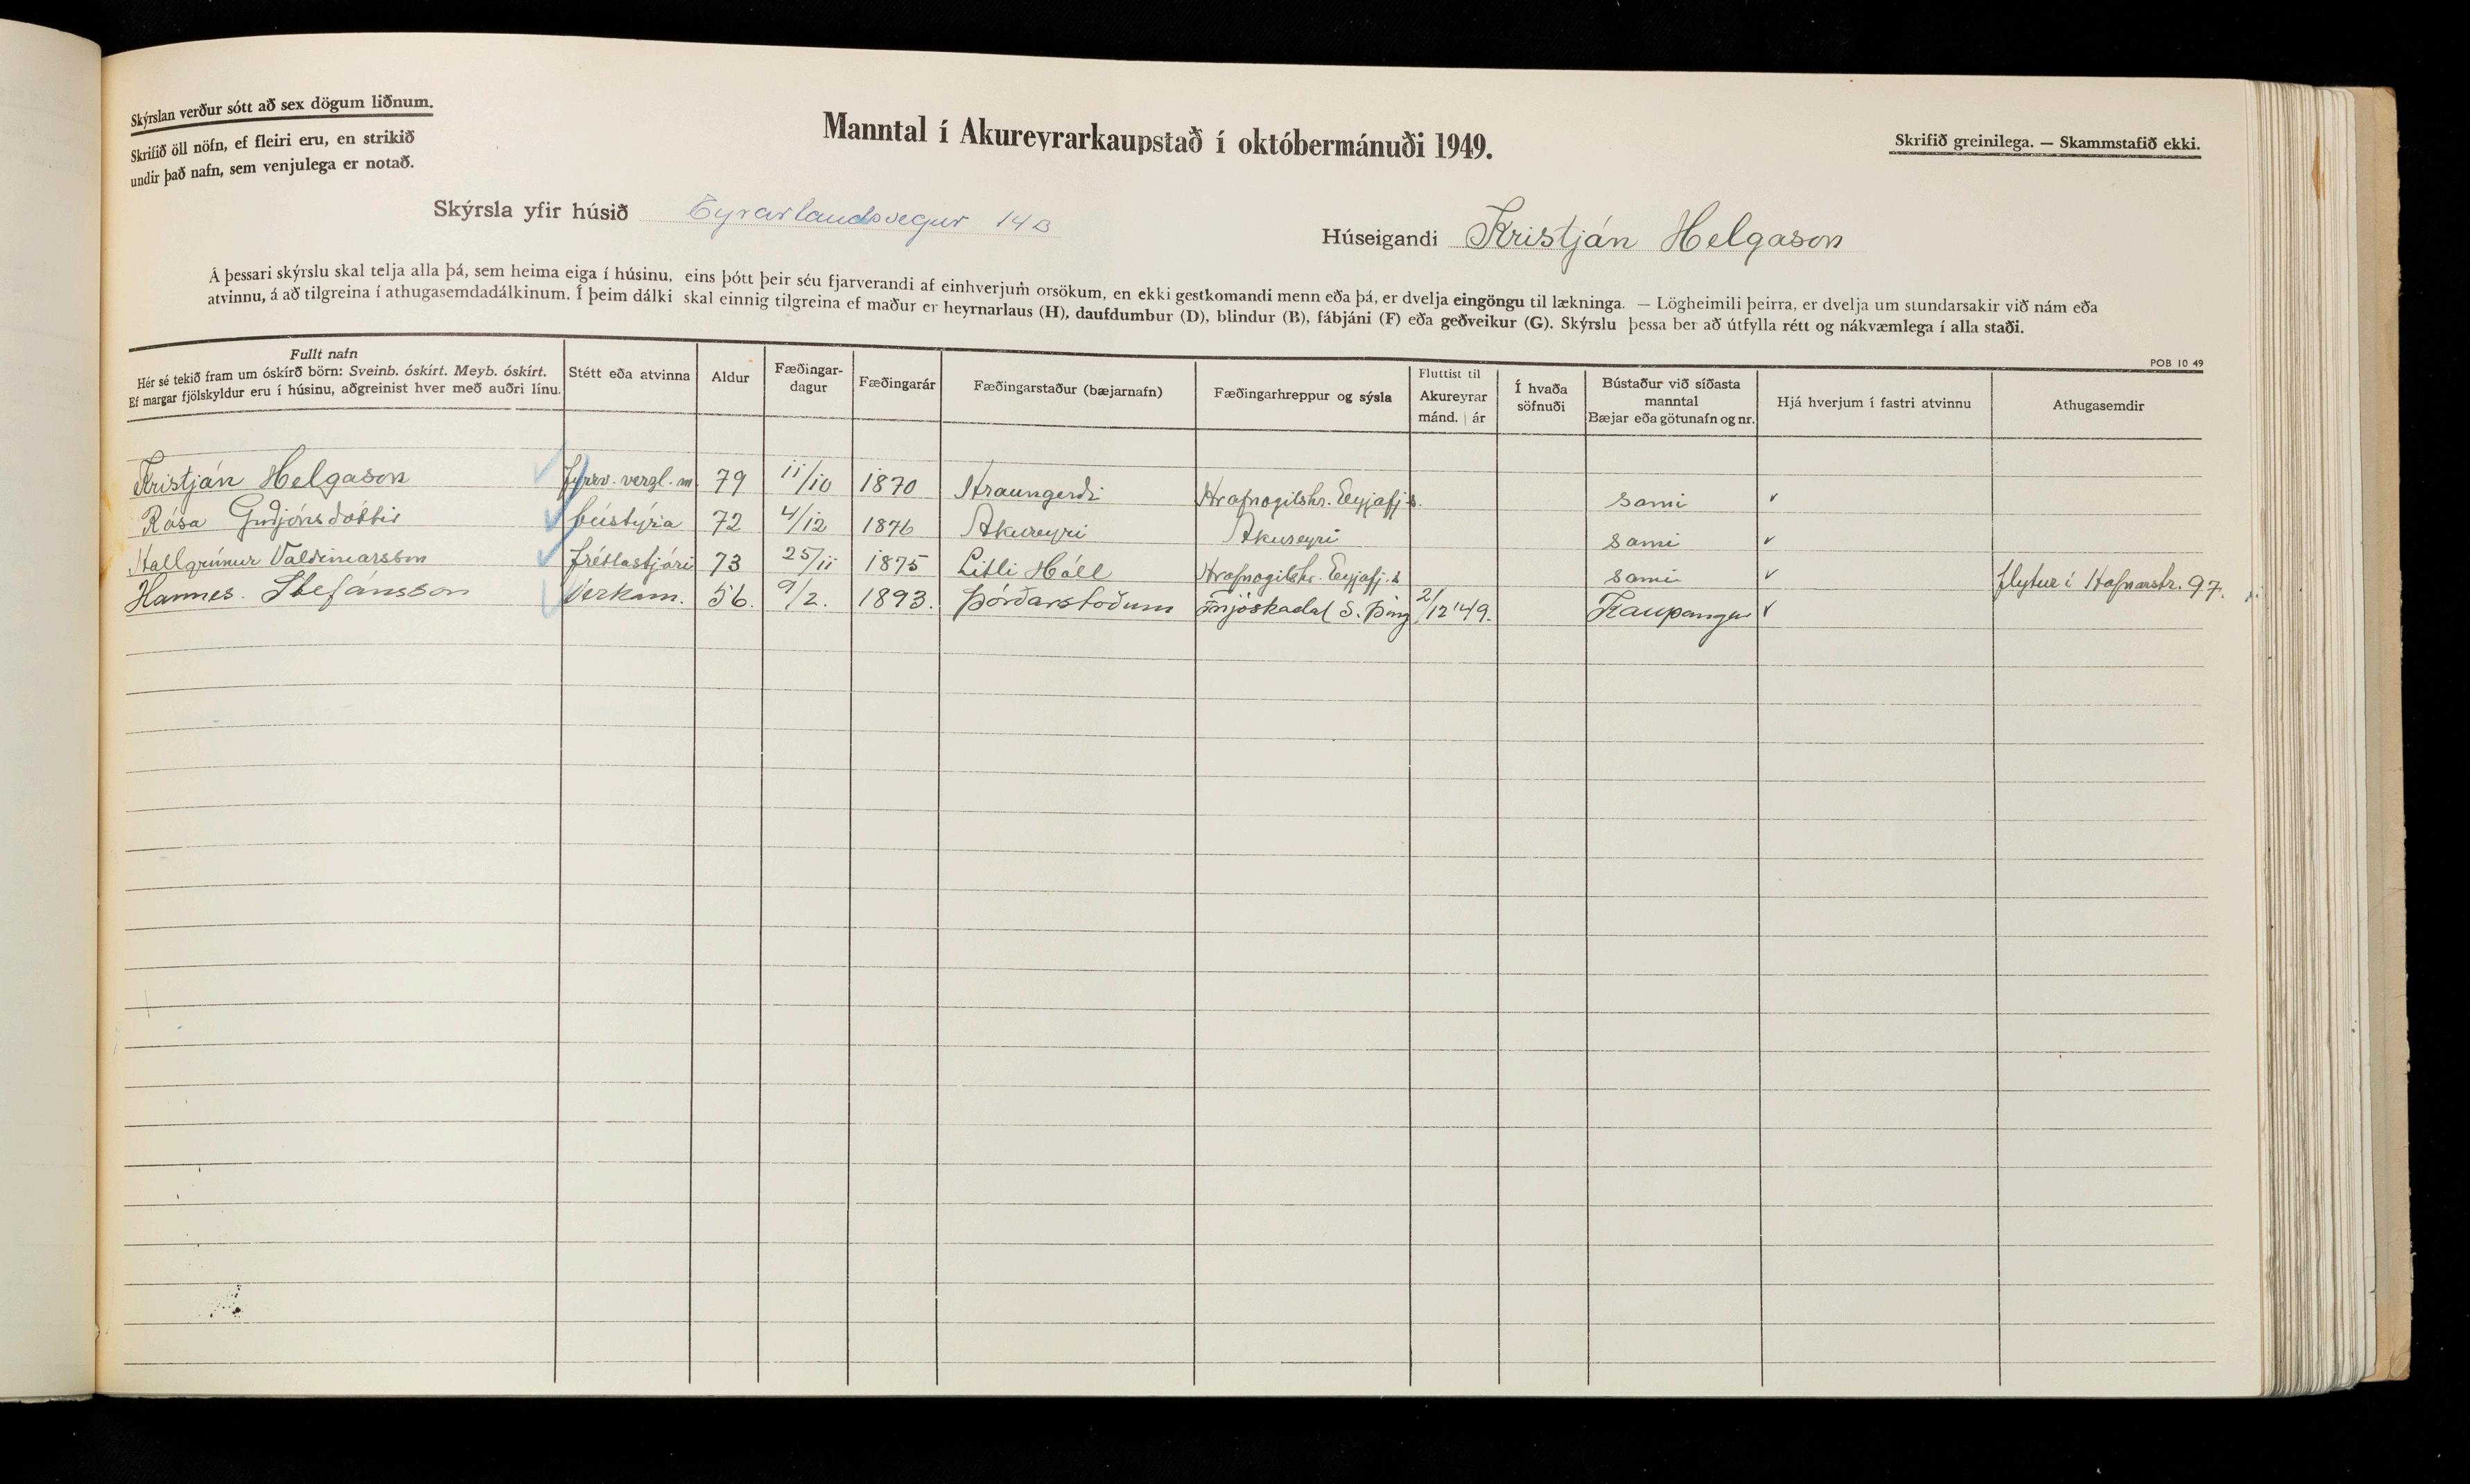 Skýrslan verður sótt að sex dögum liðnum.
Skrifið öll nöfn, ef fleiri eru, en strikið
undir það nafn, sem venjulega er notað.
Manntal í Akureyrarkaupstað í októbermánuði 1949.
Skrifið greinilega. — Skammstafið ekki.
Skýrsla yfir húsið Eyrarlandsvegur 14B
Húseigandi Kristján Helgason
Á þessari skýrslu skal telja alla þá, sem heima eiga í húsinu, eins þótt þeir séu fjarverandi af einhverjum orsökum, en ekki gestkomandi menn eða þá, er dvelja eingöngu til lækninga. — Lögheimili þeirra, er dvelja um stundarsakir við nám eða
atvinnu, á að tilgreina í athugasemdadálkinum. Í þeim dálki skal einnig tilgreina ef maður er heyrnarlaus (H), daufdumbur (D), blindur (B), fábjáni (F) eða geðveikur (G). Skýrslu þessa ber að útfylla rétt og nákvæmlega í alla staði.
POB 10 49
Fullt nafn
Hér sé tekið fram um óskírð börn: Sveinb. óskírt. Meyb. óskírt.
Ef margar fjölskyldur eru í húsinu, aðgreinist hver með auðri línu.
Stétt eða atvinna
Aldur
Fæðingar-
dagur
Fæðingarár
Fæðingarstaður (bæjarnafn)
Fæðingarhreppur og sýsla
Fluttist til
Akureyrar
mánd. | ár
Í hvaða
söfnuði
Bústaður við síðasta
manntal
Bæjar eða götunafn og nr.
Hjá hverjum í fastri atvinnu
Athugasemdir
Kristján Helgason fyrrv. verzl. m. 79 11/10 1870 Hraungerði Hrafnagilshr. Eyjafj.s. sami
Rósa Guðjónsdóttir bústýra 72 4/12 1876 Akureyri Akureyri sami
Hallgrímur Valdimarsson fréttastjóri 73 25/11 1875 Litli Hóll Hrafnagilshr. Eyjafj.s sami flytur í Hafnarstr. 97.
Hannes Stefánsson Verkam. 56. 9/2. 1893. Þórðarstöðum Fnjóskadal S. Þing 2/12'49. Kaupangur